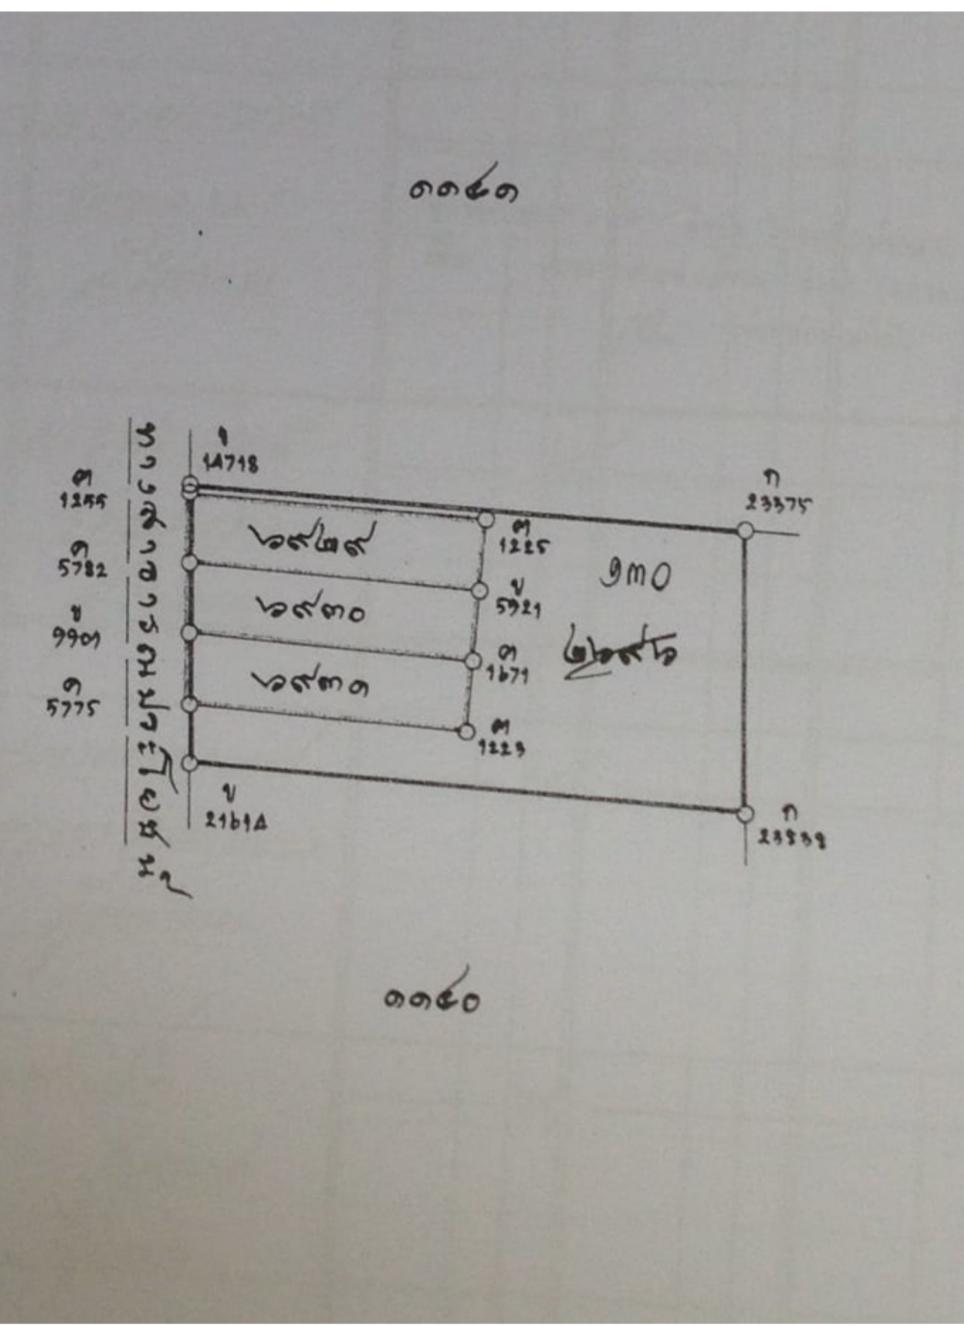 ๑๑๕๑
ข
14718
ฅ
1255
ก
23375
๖๙๒๙
ฅ
1225
ค
5782
๑๓๐
๖๙๓๐
ข
5921
ข
9901
ค
1671
๖๙๓๑
ค
5775
ฅ
1223
ข
21614
ก
23838
ทางสาธารณประโยชน์
๑๑๕๐